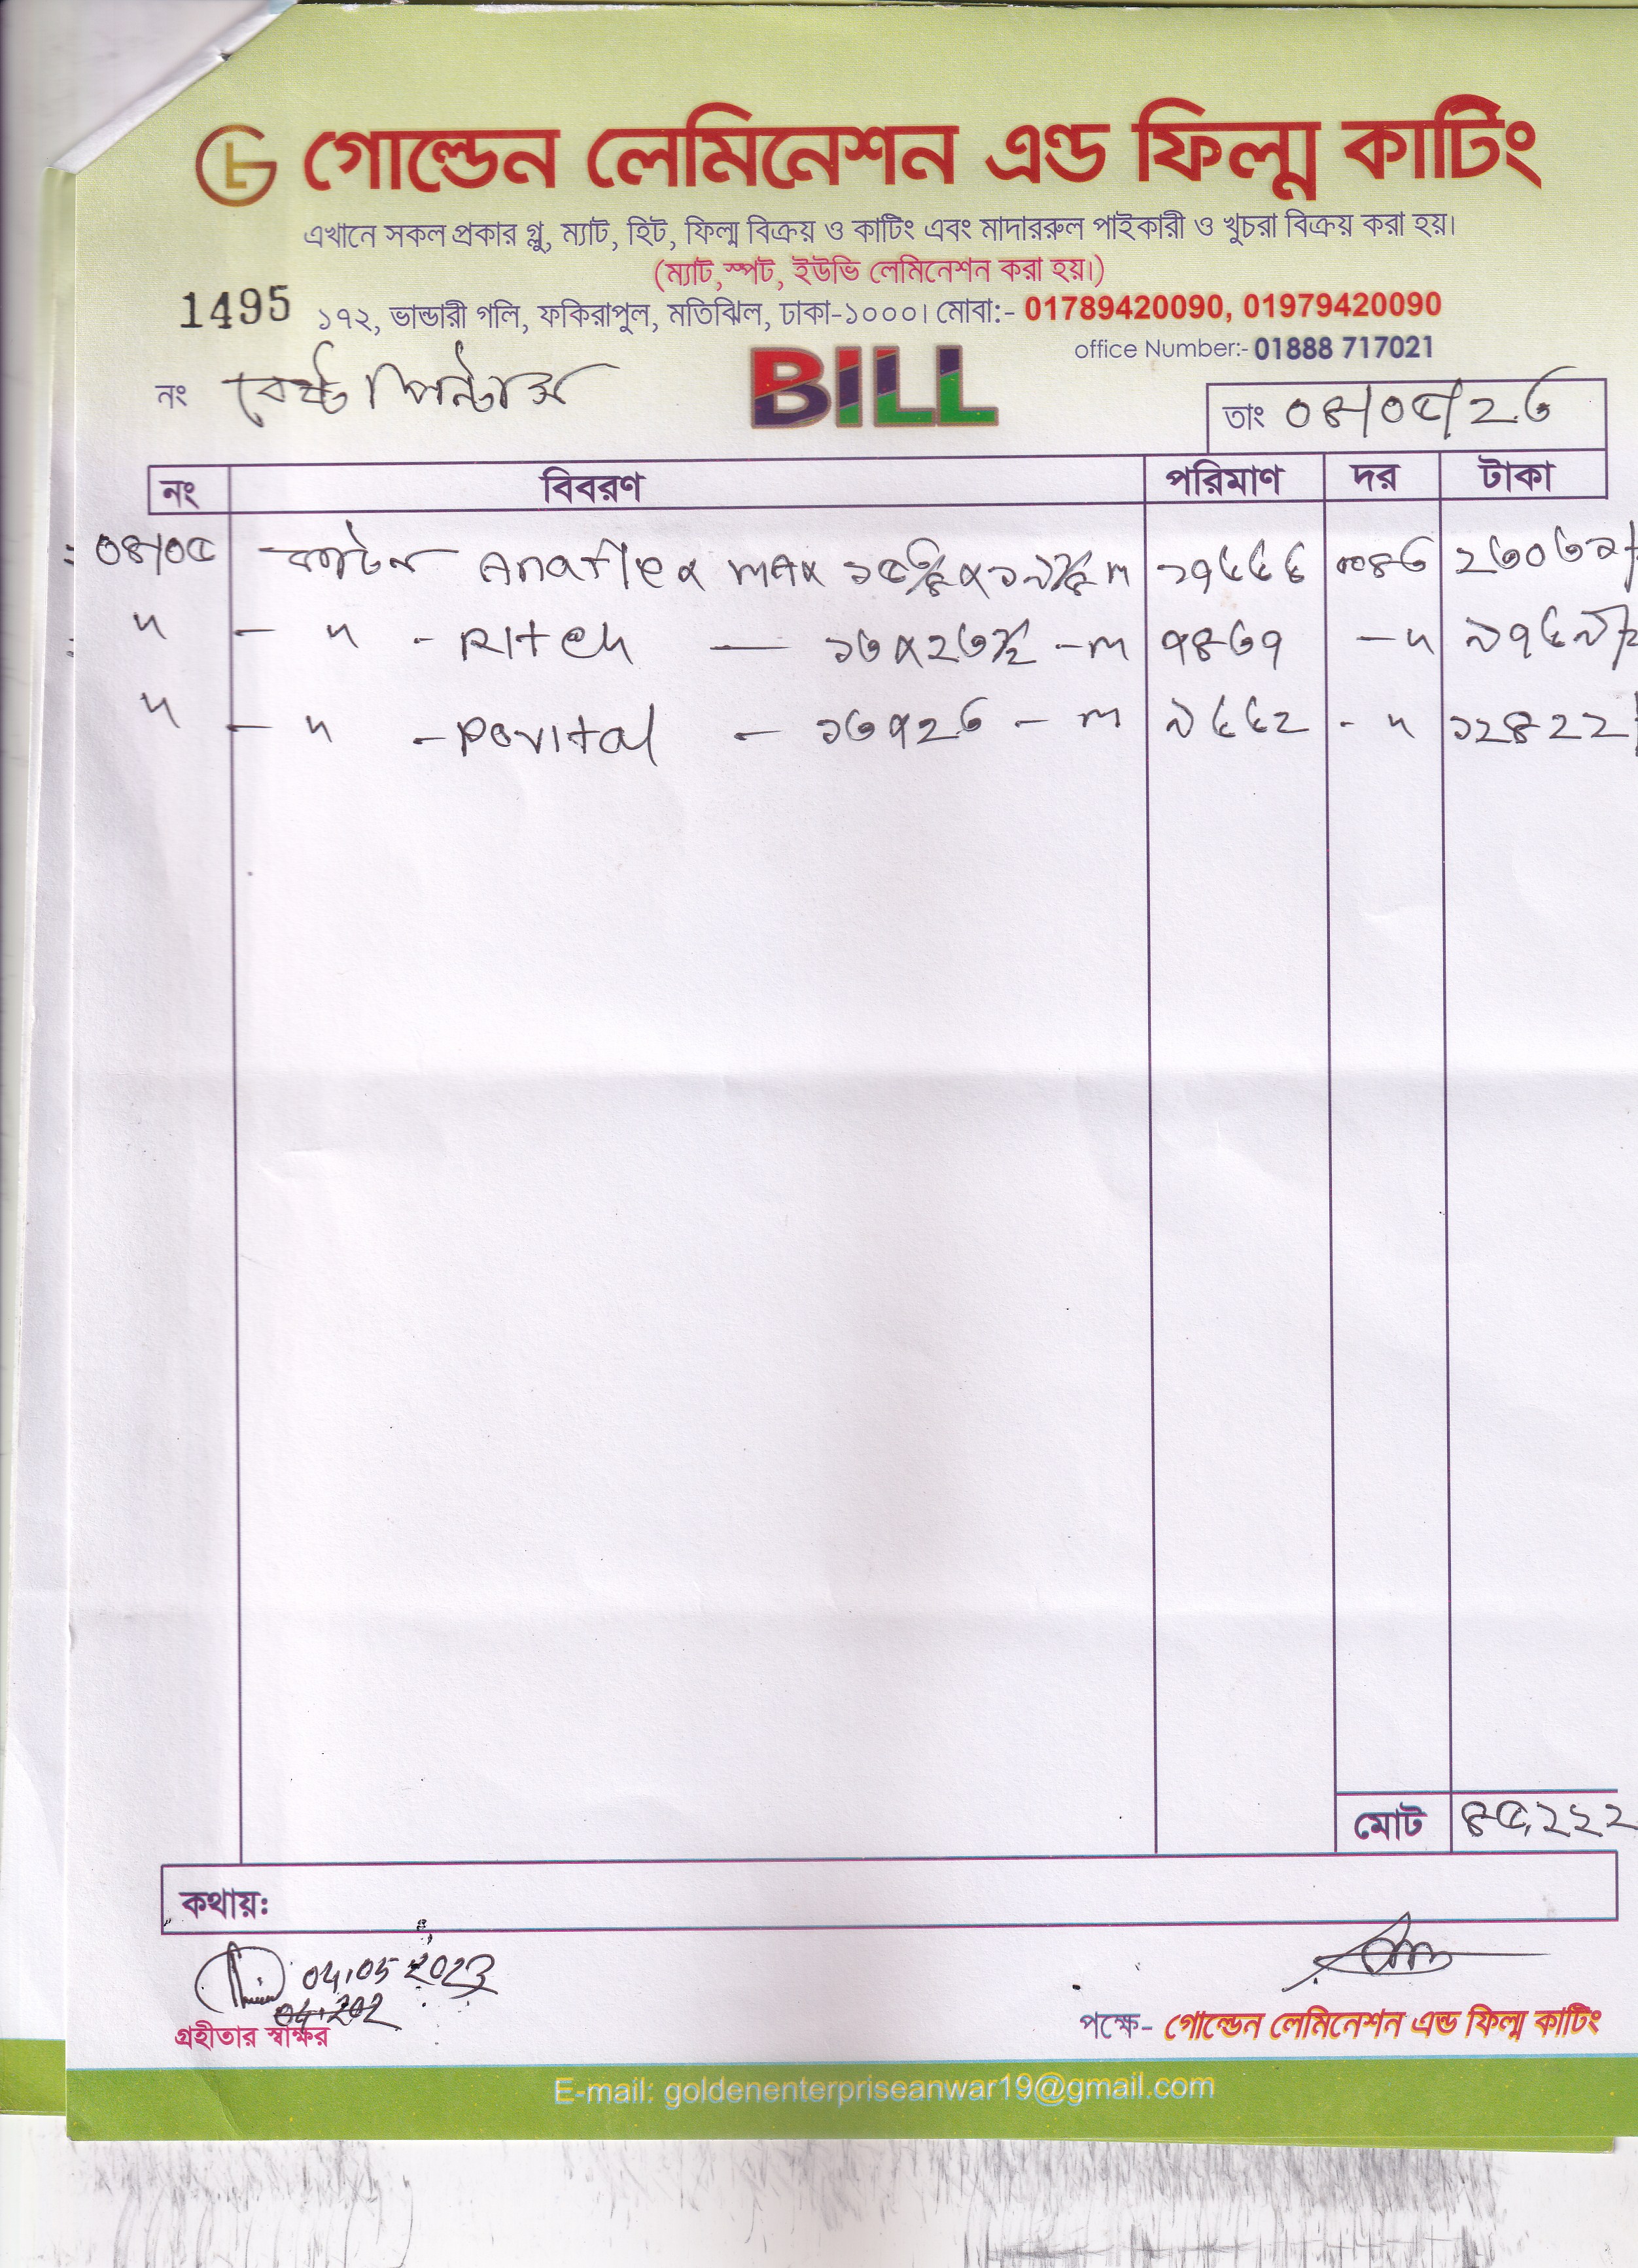 গোল্ডেন লেমিনেশন এণ্ড ফিল্ম কাটিং
এখানে সকল প্রকার গ্লু, ম্যাট, হিট, ফিল্ম বিক্রয় ও কাটিং এবং মাদাররুল পাইকারী ও খুচরা বিক্রয় করা হয়।
(ম্যাট,স্পট, ইউভি লেমিনেশন করা হয়।)
1495 ১৭২, ভান্ডারী গলি, ফকিরাপুল, মতিঝিল, ঢাকা-১০০০। মোবা:- 01789420090, 01979420090
office Number:- 01888 717021
নং BILL
তাং ০৪/০৫/২৩
নং বিবরণ পরিমাণ দর টাকা
০৪/০৫ কার্টন Anaflex MAX ১৭৬৬৬ ২৩০৩২/
" - " - RItch — ১৩x২৩½ - m ৭৪৩৭ - " ৯৭৬৯/
" - " - Povital - ১৩x২৩ - m ৯৬৬২ - " ১২৪২২/
মোট ৪৫,২২২
কথায়:
04.05 2023
গ্রহীতার স্বাক্ষর
পক্ষে- গোল্ডেন লেমিনেশন এন্ড ফিল্ম কাটিং
E-mail: goldenenterpriseanwar19@gmail.com